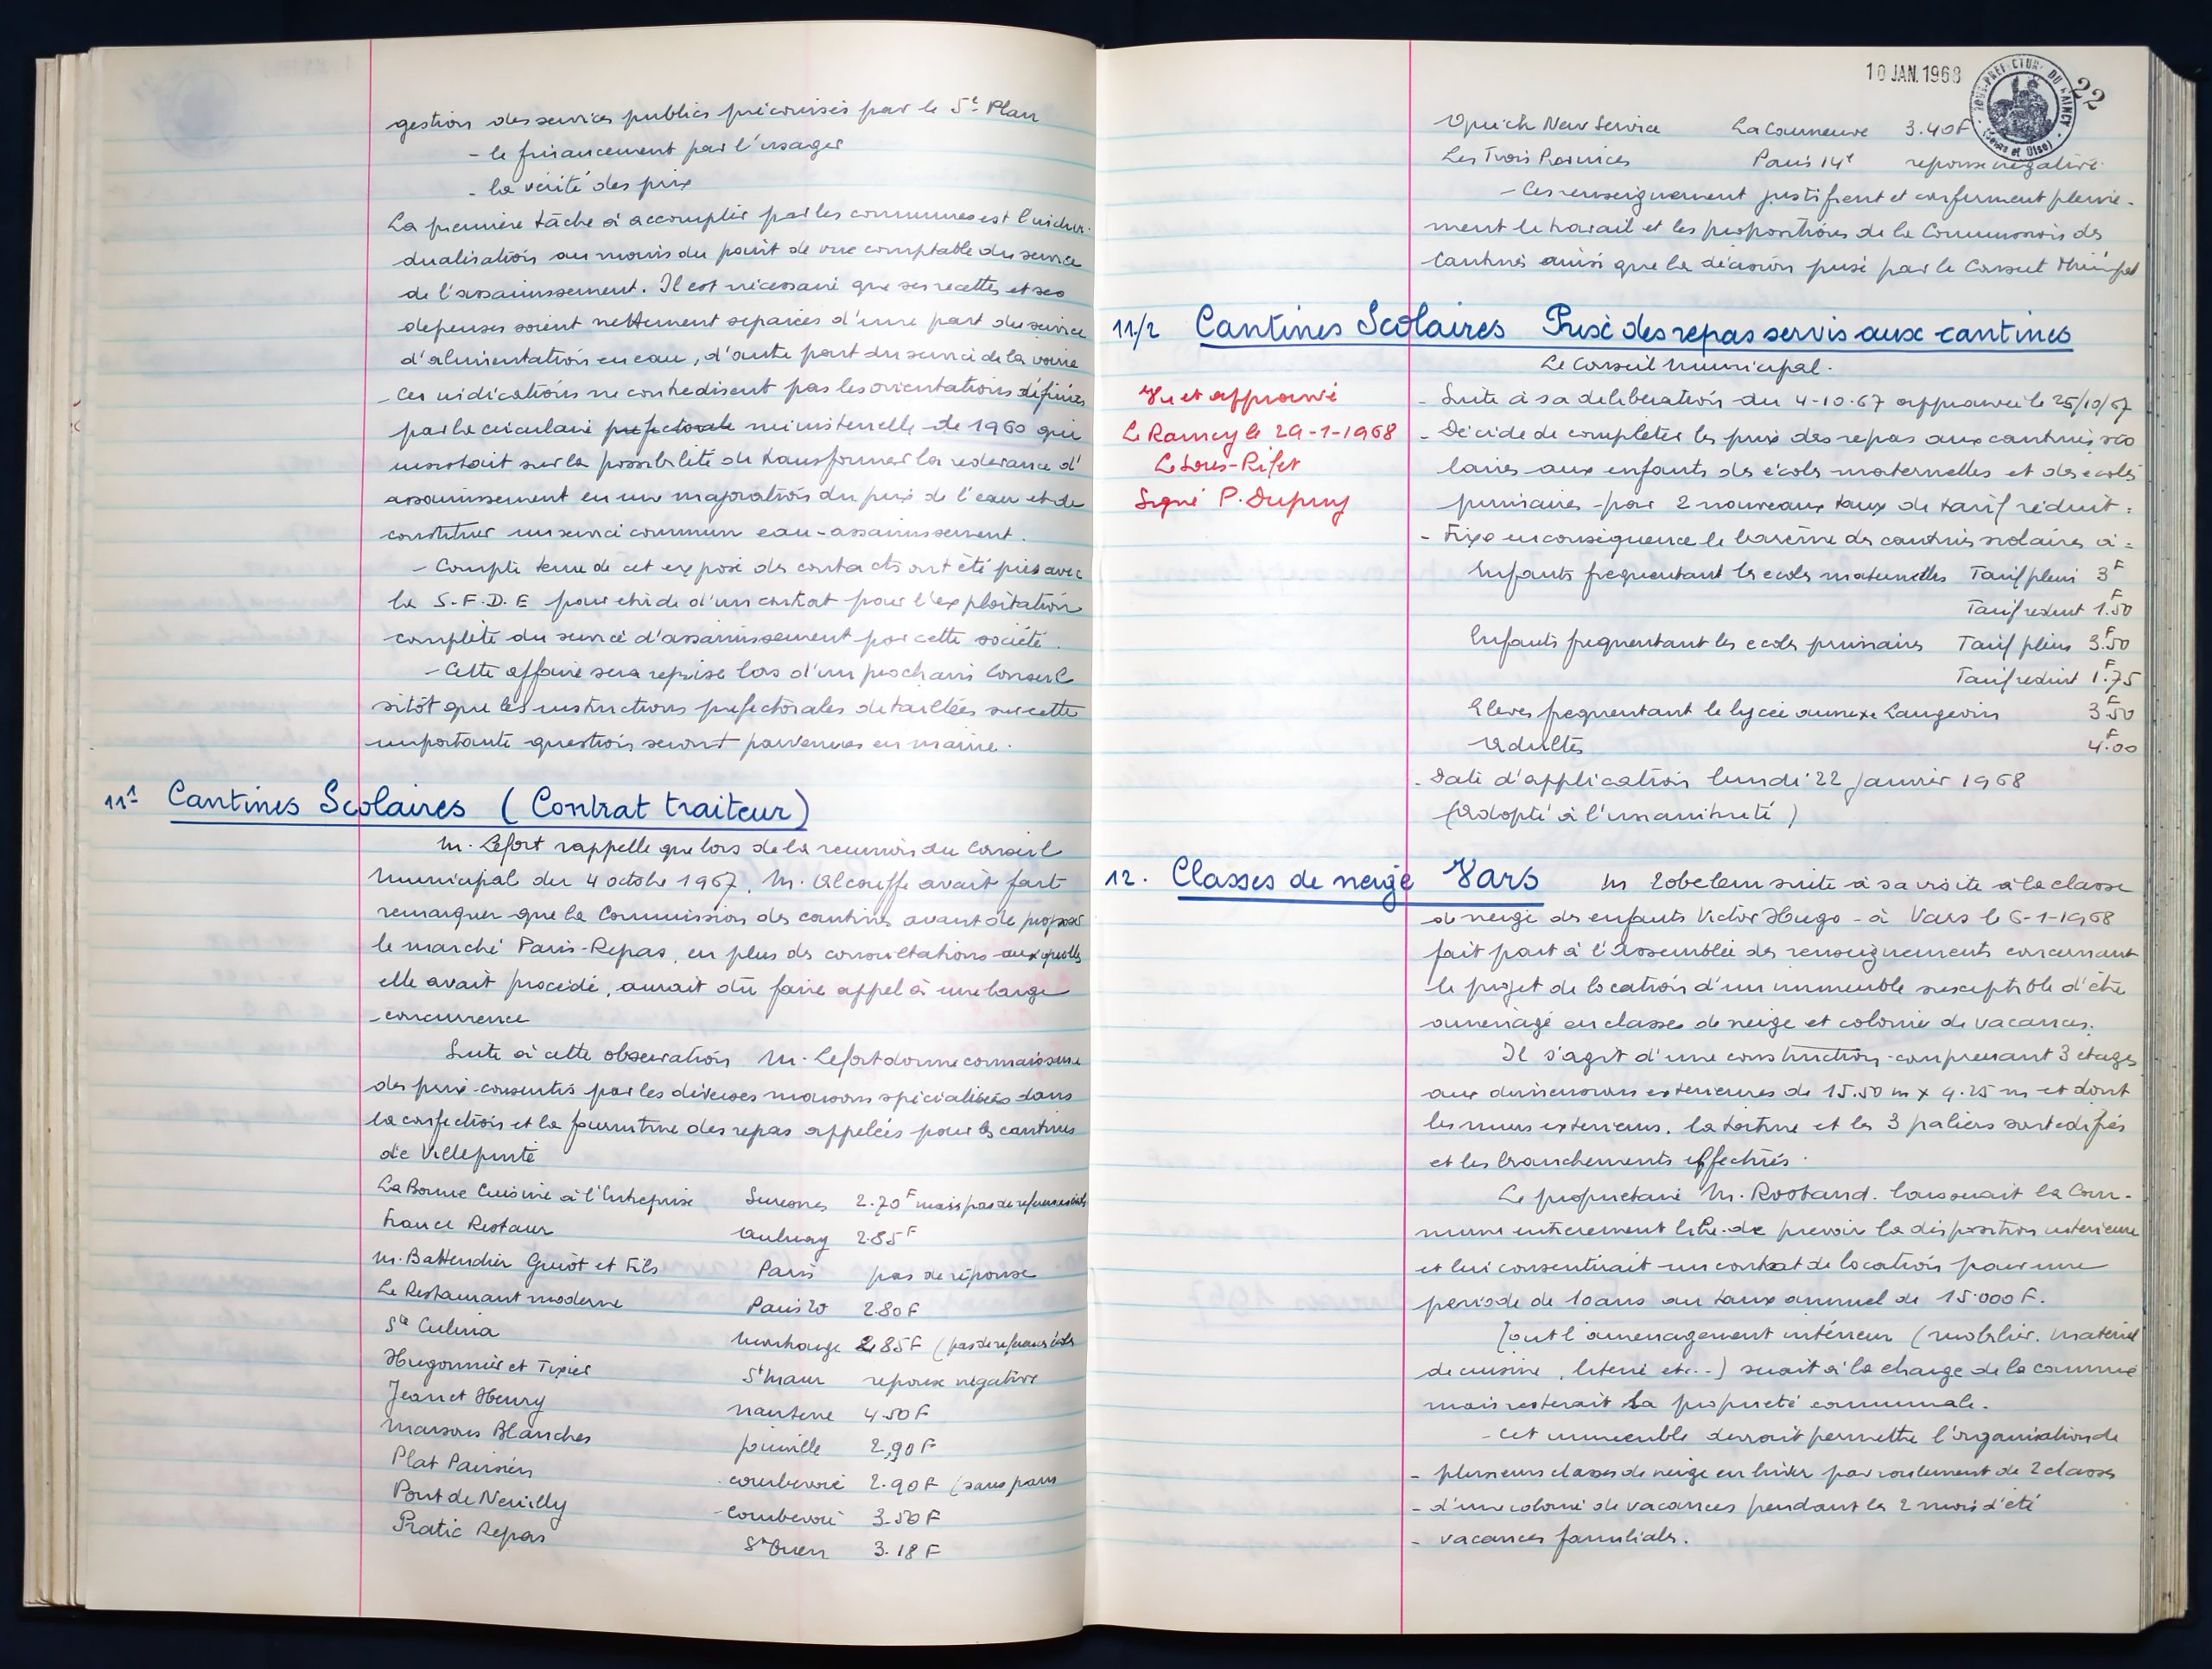 gestion des services publics préconisés par le 5e Plan
- le financement par l'usager
- la vérité des prix
La première tâche à accomplir par les communes est l'indivi-
dualisation au moins du point de vue comptable du service
de l'assainissement. Il est nécessaire que ses recettes et ses
depenses soient nettement separées d'une part du service
d'alimentation en eau, d'autre part du service de la voirie
- Ces indications ne contredisent pas les orientations définies
par la circulaire prefectorale ministerielle de 1960 qui
insistait sur la possibilité de transformer la redevance d'
assainissement en une majoration du prix de l'eau et de
constituer un service commun eau-assainissement.
- Compte tenu de cet exposé des contacts ont été pris avec
la S.F.D.E pour etude d'un contrat pour l'exploitation
complète du service d'assainissement par cette société.
- Cette affaire sera reprise lors d'un prochain Conseil
sitôt que les instructions prefectorales detaillées sur cette
importante question seront parvenues en mairie.
11¹ Cantines Scolaires (Contrat traiteur)
M. Lefort rappelle que lors de la reunion du Conseil
Municipal du 4 octobre 1967, M. Alcouffe avait fait
remarquer que la Commission des cantines avant de proposer
le marché Paris-Repas, en plus des consultations auxquelles
elle avait procédé, aurait dû faire appel à une large
concurrence
Suite à cette observation M. Lefort donne connaissance
des prix consentis par les diverses maisons spécialisées dans
la confection et la fourniture des repas appelées pour les cantines
de Villepinte
La Bonne Cuisine à l'Entreprise Suresnes 2.70F mais pas de references écoles
France Restaur Aulnay 2.85F
M. Battendier Guiot et Fils Paris pas de réponse
Le Restaurant moderne Paris 20 2.80F
Sté Culina Montrouge 2.85F (pas de references écoles
Hugonnier et Tixier St Maur reponse négative
Jean et Henry Nanterre 4.50F
Maisons Blanches Joinville 2,90F
Plat Parisien Courbevoie 2.90F (sans pain
Pont de Neuilly Courbevoie 3.50F
Pratic Repas St Ouen 3.18F
10 JAN. 1968
SOUS-PREFECTURE DU RAINCY (Seine et Oise)
22
New Service La Courneuve 3.40F
Les Trois Paris 14e reponse négative.
- Ces renseignement justifient et confirment pleine-
ment le travail et les propositions de la Commission des
Cantines ainsi que la décision prise par le Conseil Municipal
11/2 Cantines Scolaires Prix des repas servis aux cantines
Le Conseil Municipal.
Vu et approuvé
Le Raincy le 29-1-1968
Le Sous-Préfet
Signé P. Dupuy
- Suite à sa deliberation du 4-10-67 approuvée le 25/10/67
- Décide de completer les prix des repas aux cantines sco
laires aux enfants des écoles maternelles et des ecoles
primaires par 2 nouveaux taux de tarif réduit :
- Fixe en conséquence le barème des cantines scolaires à :
Enfants frequentant les ecoles maternelles Tarif plein 3F
Tarif reduit 1.F50
Enfants frequentant les ecoles primaires Tarif plein 3.F50
Tarif reduit 1.F75
Eleves frequentant le lycée annexe Langevin 3.F50
Adultes 4.F00
- Date d'application lundi 22 Janvier 1968
(Adopté à l'unanimité)
12. Classes de neige Vars M Lobelem suite à sa visite à la classe
de neige des enfants Victor Hugo - à Vars le 6-1-1968
fait part à l'Assemblée des renseignements concernant
le projet de location d'un immeuble susceptible d'être
aménagé en classes de neige et colonie de vacances.
Il s'agit d'une construction comprenant 3 etages
aux dimensions exterieures de 15.50 m x 9.25 m et dont
les murs exterieurs, la toiture et les 3 paliers sont edifiés
et les branchements effectués.
Le proprietaire M. Rostand. laisserait la Com-
mune entierement libre de prevoir la disposition interieure
et lui consentirait un contrat de location pour une
periode de 10 ans au taux annuel de 15.000 F.
Tout l'amenagement intérieur (mobilier, materiel
de cuisine, literie etc...) serait à la charge de la commune
mais resterait la proprieté communale.
- Cet immeuble devrait permettre l'organisation de
- plusieurs classes de neige en hiver par roulement de 2 classes
- d'une colonie de vacances pendant les 2 mois d'été
- vacances familiales.